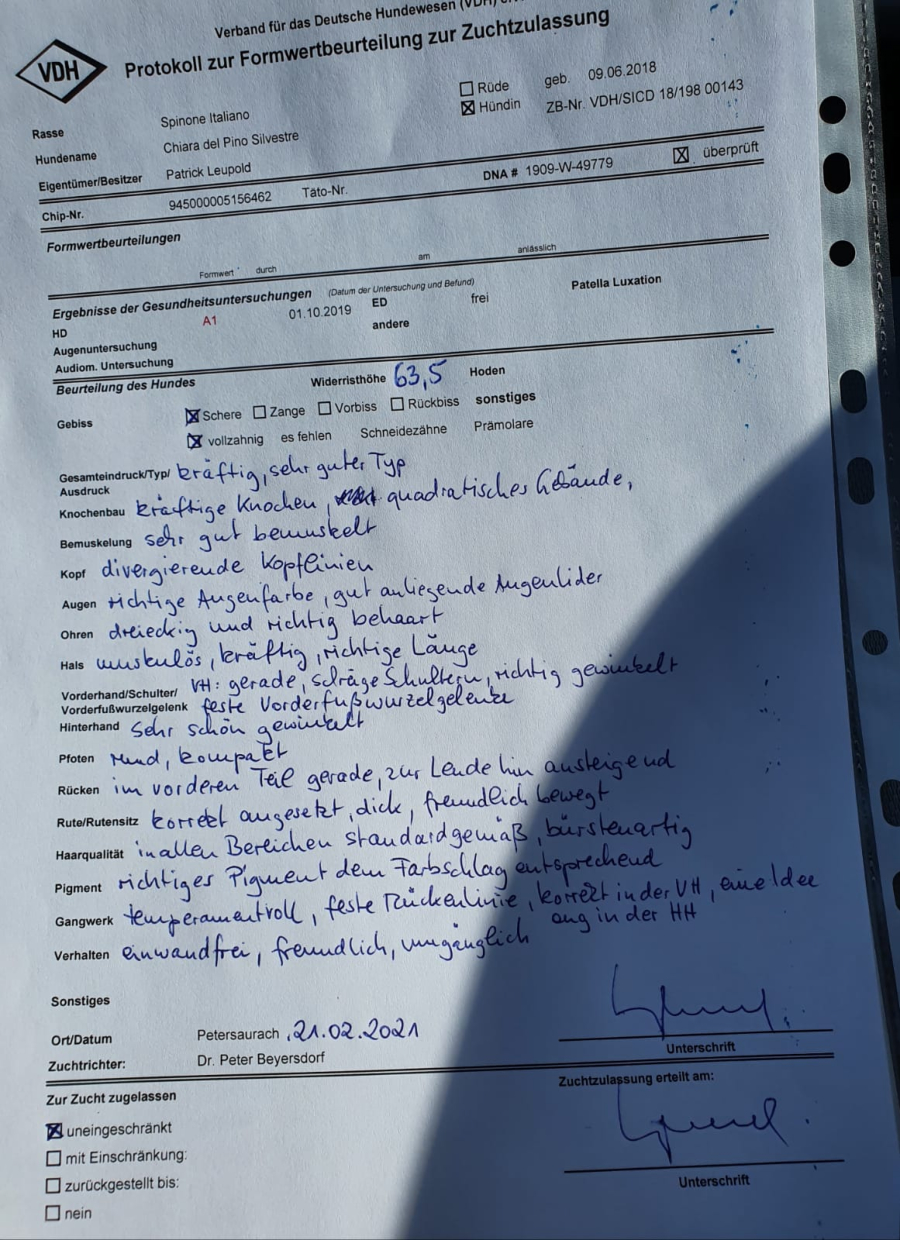 Verband für das Deutsche Hundewesen (VDH)
VDH
Protokoll zur Formwertbeurteilung zur Zuchtzulassung
☐ Rüde geb. 09.06.2018
☒ Hündin ZB-Nr. VDH/SICD 18/198 00143
Rasse Spinone Italiano
Hundename Chiara del Pino Silvestre
Eigentümer/Besitzer Patrick Leupold
Chip-Nr. 945000005156462 Täto-Nr. DNA # 1909-W-49779 ☒ überprüft
Formwertbeurteilungen
Formwert durch am anlässlich
Ergebnisse der Gesundheitsuntersuchungen (Datum der Untersuchung und Befund)
HD A1 01.10.2019 ED frei Patella Luxation
Augenuntersuchung andere
Audiom. Untersuchung
Beurteilung des Hundes Widerristhöhe 63,5 Hoden
Gebiss ☒ Schere ☐ Zange ☐ Vorbiss ☐ Rückbiss sonstiges
☒ vollzahnig es fehlen Schneidezähne Prämolare
Gesamteindruck/Typ/ kräftig, sehr guter Typ
Ausdruck
Knochenbau kräftige Knochen, quadratisches Gebäude,
Bemuskelung sehr gut bemuskelt
Kopf divergierende Kopflinien
Augen richtige Augenfarbe, gut anliegende Augenlider
Ohren dreieckig und richtig behaart
Hals muskulös, kräftig, richtige Länge
Vorderhand/Schulter/ VH: gerade, schräge Schultern, richtig gewinkelt
Vorderfußwurzelgelenk feste Vorderfußwurzelgelenke
Hinterhand sehr schön gewinkelt
Pfoten rund, kompakt
Rücken im vorderen Teil gerade, zur Lende hin ansteigend
Rute/Rutensitz korrekt angesetzt, dick, freundlich bewegt
Haarqualität in allen Bereichen standardgemäß, bürstenartig
Pigment richtiges Pigment dem Farbschlag entsprechend
Gangwerk temperamentvoll, feste Rückenlinie, korrekt in der VH, eine Idee
eng in der HH
Verhalten einwandfrei, freundlich, umgänglich
Sonstiges
Ort/Datum Petersaurach, 21.02.2021
Unterschrift
Zuchtrichter: Dr. Peter Beyersdorf
Zur Zucht zugelassen Zuchtzulassung erteilt am:
☒ uneingeschränkt
☐ mit Einschränkung:
☐ zurückgestellt bis:
Unterschrift
☐ nein